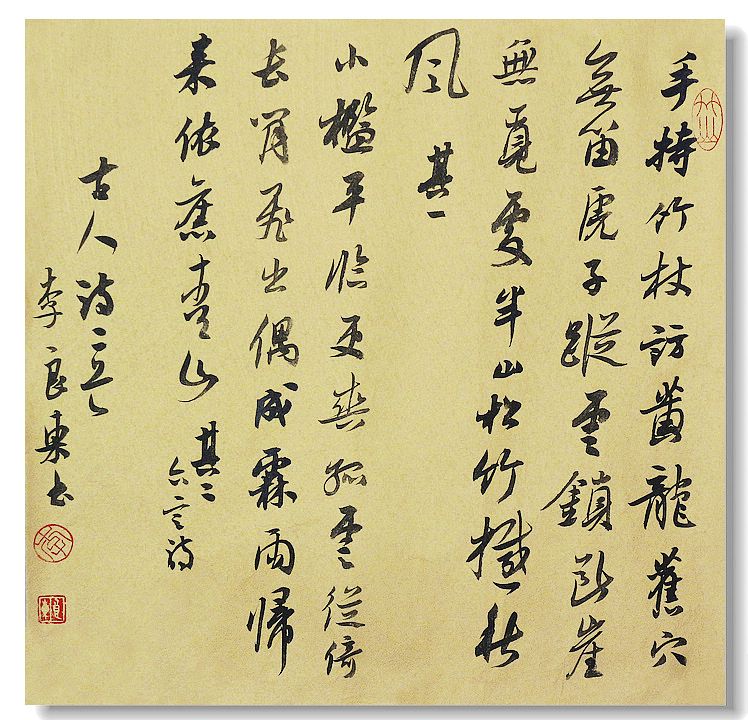 手持竹杖訪黃龍舊穴
留虎子蹤雲鎖斷崖
無覓處半山松竹撼秋
風 其一
小檻平臨更爽孤雲從倚
長飛出偶成霖雨歸
來依舊青山 其二
六言詩
古人詩二首
李良東書